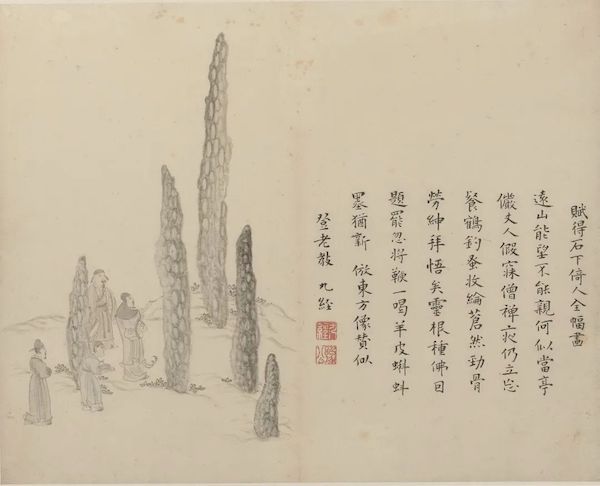 賦得石下倚人全幅畫
遠山能望不能親何似當亭
儼丈人假寐僧禪仍立忘
餐鶴釣收綸蒼然勁骨
勞紳拜悟矣靈根種佛因
題罷忽將鞭一喝羊皮蝌蚪
墨猶新 倣東方像贊似
登老教 九經